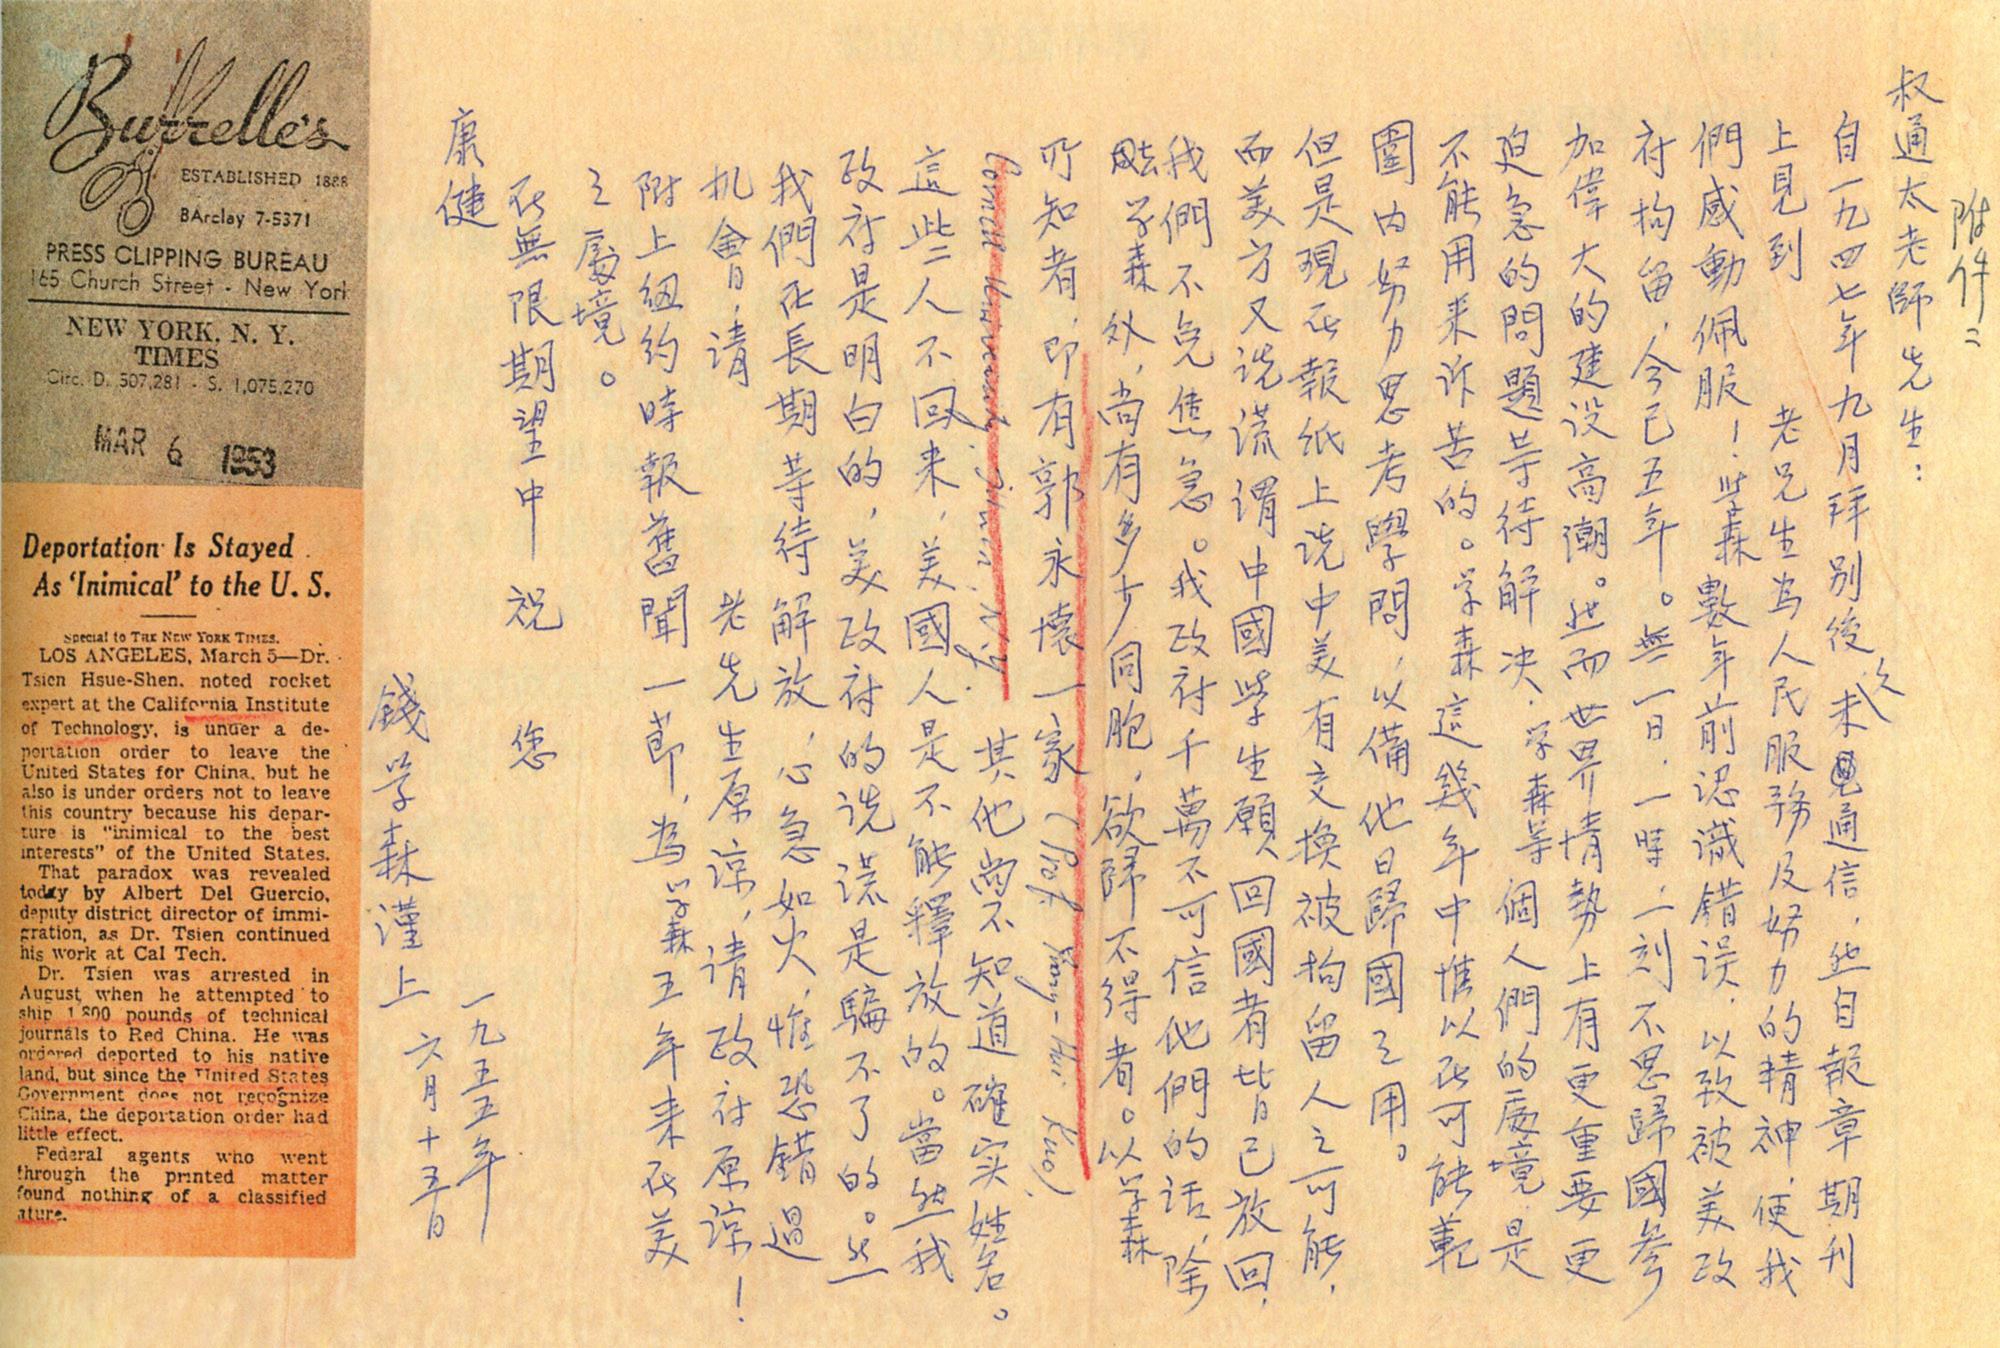 附件二
叔通太老師先生：
自一九四七年九月拜別後久未通信，然自報章期刊
上見到　老先生為人民服務及努力的精神，使我
們感動佩服！学森數年前認識錯误，以致被美政
府拘留，今已五年。無一日，一時，一刻不思歸國參
加偉大的建设高潮。然而世界情勢上有更重要更
迫急的問題等待解决，学森等個人們的處境是
不能用来诉苦的。学森這幾年中惟以在可能範
圍内努力思考學問，以備他日歸國之用。
但是現在報纸上说中美有交換被拘留人之可能，
而美方又说谎谓中國学生願回國者皆已放回，
我們不免焦急。我政府千萬不可信他們的话，除
学森外，尚有多少同胞，欲歸不得者。以学森
所知者，即有郭永懷一家（Prof. Yung-Huai Kuo,
Cornell University, Ithaca, N.Y.）其他尚不知道確实姓名。
這些人不回来，美國人是不能釋放的。當然我
政府是明白的，美政府的说谎是騙不了的。然
我們在長期等待解放，心急如火，惟恐錯過
机會，请　老先生原谅，请政府原谅！
附上纽约時報舊聞一節，為学森五年来在美
之處境。
在無限期望中祝　您
康健
錢学森谨上
一九五五年
六月十五日
Burrelle's
ESTABLISHED 1888
BArclay 7-5371
PRESS CLIPPING BUREAU
165 Church Street - New York
NEW YORK, N. Y.
TIMES
Circ. D. 507,281 - S. 1,075,270
MAR 6 1953
Deportation Is Stayed
As 'Inimical' to the U. S.
Special to THE NEW YORK TIMES.
LOS ANGELES, March 5—Dr.
Tsien Hsue-Shen, noted rocket
expert at the California Institute
of Technology, is under a de-
portation order to leave the
United States for China, but he
also is under orders not to leave
this country because his depar-
ture is "inimical to the best
interests" of the United States.
That paradox was revealed
today by Albert Del Guercio,
deputy district director of immi-
gration, as Dr. Tsien continued
his work at Cal Tech.
Dr. Tsien was arrested in
August when he attempted to
ship 1,800 pounds of technical
journals to Red China. He was
ordered deported to his native
land, but since the United States
Government does not recognize
China, the deportation order had
little effect.
Federal agents who went
through the printed matter
found nothing of a classified
ature.